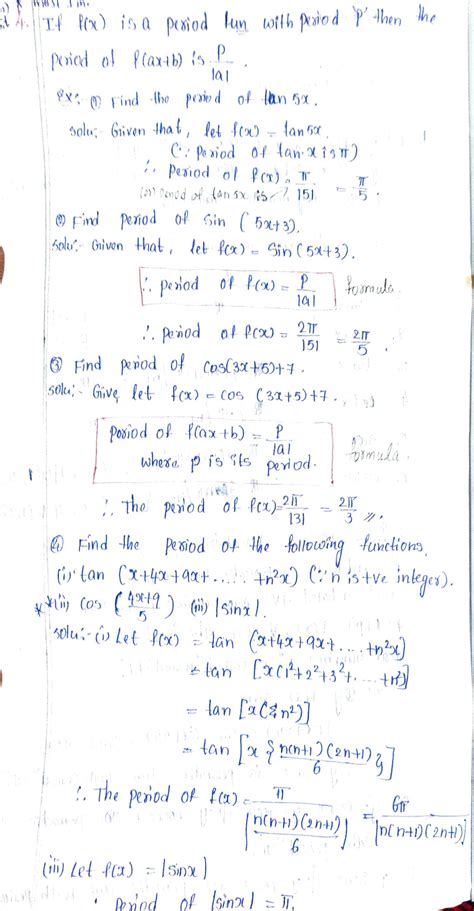 If f(x) is a period fun with period 'P' then the
period of f(ax+b) is P/|a|.
Ex:- ① Find the period of tan 5x.
Solu:- Given that, let f(x) = tan 5x.
(∵ Period of tan x is π)
∴ Period of f(x) = π/|5| = π/5.
(or) period of tan 5x is
② Find period of sin (5x+3).
Solu:- Given that, let f(x) = sin (5x+3).
∴ period of f(x) = P/|a| formula
∴ period of f(x) = 2π/|5| = 2π/5.
③ Find period of cos(3x+5)+7.
Solu:- Give, let f(x) = cos (3x+5)+7.
Period of f(ax+b) = P/|a|
where p is its period. formula
∴ The period of f(x) = 2π/|3| = 2π/3 //.
④ Find the period of the following functions.
(i) tan (x+4x+9x+.....+n²x) (∵ n is +ve integer).
**(ii) cos (4x+9/5) (iii) |sinx|.
Solu:- (i) Let f(x) = tan (x+4x+9x+....+n²x)
= tan [x(1²+2²+3²+....+n²)]
= tan [x(Σn²)]
= tan [x {n(n+1)(2n+1)/6}]
∴ The period of f(x) = π/|n(n+1)(2n+1)/6| = 6π/|n(n+1)(2n+1)|
(iii) Let f(x) = |sinx|
∴ Period of |sinx| = π.